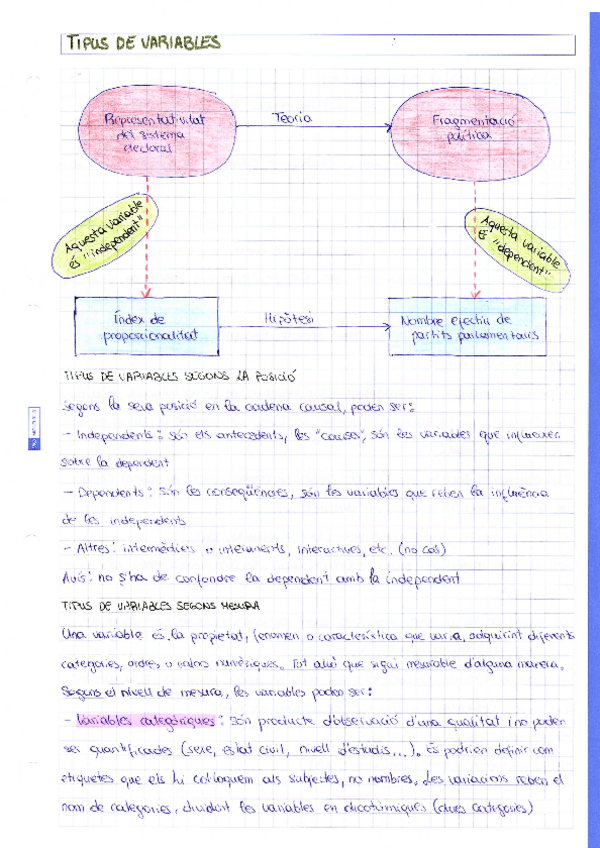 TIPUS DE VARIABLES
Representativitat
del sistema
electoral
Teoria
Fragmentació
política
Aquesta variable
és "independent"
Aquesta variable
És "dependent"
Índex de
proporcionalitat
Hipòtesi
Nombre efectiu de
partits parlamentaris
TIPUS DE VARIABLES SEGONS LA POSICIÓ
Segons la seva posició en la cadena causal, poden ser:
- Independents: són els antecedents, les "causes", són les variables que influeixen
sobre la dependent
- Dependents: Són les conseqüències, són les variables que reben la influència
de les independents
- Altres: intermèdies o intervinents, interactives, etc. (no cal)
Avís: no s'ha de confondre la dependent amb la independent
TIPUS DE VARIABLES SEGONS MESURA
Una variable és la propietat, fenomen o característica que varia, adquirint diferents
categories, ordres o valors numèriques. Tot allò que sigui mesurable d'alguna manera.
Segons el nivell de mesura, les variables poden ser:
- Variables categòriques: Són producte d'observació d'una qualitat i no poden
ser quantificades (sexe, estat civil, nivell d'estudis...). Es podrien definir com
etiquetes que els hi col·loquem als subjectes, no nombres. Les variacions reben el
nom de categories, dividint les variables en dicotòmiques (dues categories)